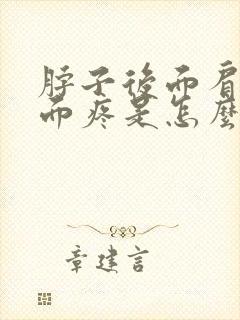 脖子後面肩
面疼是怎麼
章建言